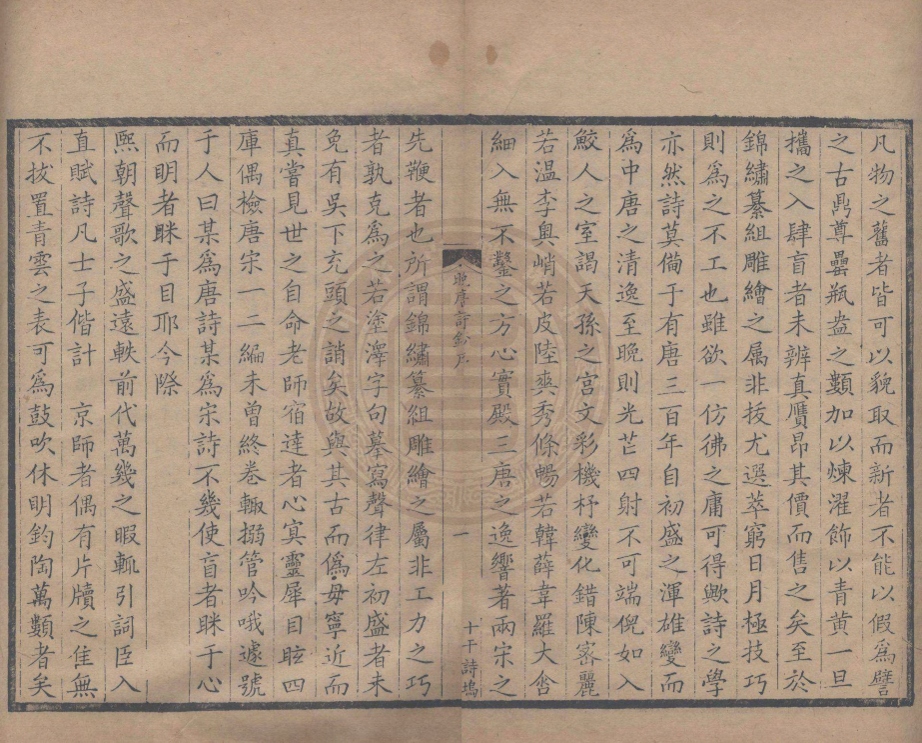 凡物之舊者皆可以貌取而新者不能以假爲譬
之古鼎尊罍瓶盎之類加以煉濯飾以青黃一旦
攜之入肆盲者未辨真贋昂其價而售之矣至於
錦繡纂組雕繪之屬非拔尤選萃窮日月極技巧
則爲之不工也雖欲一仿彿之庸可得歟詩之學
亦然詩莫備于有唐三百年自初盛之渾雄變而
爲中唐之清逸至晚則光芒四射不可端倪如入
鮫人之室謁天孫之宮文彩機杼變化錯陳宻麗
若溫李奧峭若皮陸爽秀條暢若韓薛韋羅大含
細入無不鑿之方心實殿三唐之逸響著兩宋之
晚唐詩鈔序
一
十千詩塢
先鞭者也所謂錦繡纂組雕繪之屬非工力之巧
者孰克爲之若塗澤字句摹寫聲律左初盛者未
免有吳下充頭之誚矣故與其古而僞毋寧近而
真嘗見世之自命老師宿達者心冥靈犀目眩四
庫偶檢唐宋一二編未曾終卷輙搦管吟哦遽號
于人曰某爲唐詩某爲宋詩不幾使盲者眯于心
而明者眯于目邪今際
熙朝聲歌之盛遠軼前代萬幾之暇輒引詞臣入
直賦詩凡士子偕計　京師者偶有片牘之隹無
不拔置青雲之表可爲鼓吹休明鈞陶萬類者矣